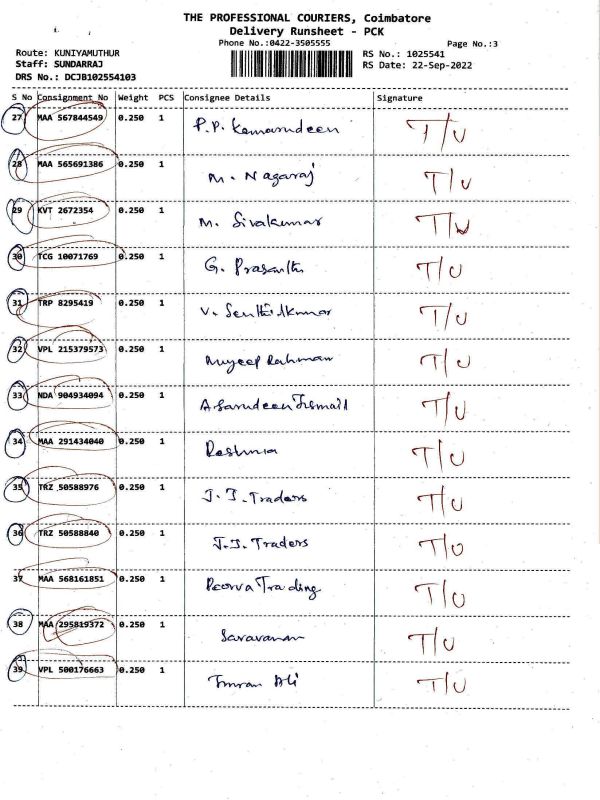 THE PROFESSIONAL COURIERS, Coimbatore
Delivery Runsheet - PCK
Phone No.:0422-3505555
Page No.:3
Route: KUNIYAMUTHUR
RS No.: 1025541
Staff: SUNDARRAJ
RS Date: 22-Sep-2022
DRS No.: DCJB102554103
S No Consignment No Weight PCS Consignee Details Signature
27 MAA 567844549 0.250 1 P.P. Kamarudeen T/U
28 MAA 565691386 0.250 1 M. Nagaraj T/U
29 KVT 2672354 0.250 1 M. Sivakumar T/U
30 TCG 10071769 0.250 1 G. Prasanth T/U
31 TRP 8295419 0.250 1 V. Senthilkumar T/U
32 VPL 215379573 0.250 1 Mujeep Rahman T/U
33 NDA 904934094 0.250 1 Asarudeen Ismail T/U
34 MAA 291434040 0.250 1 Reshma T/U
35 TRZ 50588976 0.250 1 J.J. Traders T/U
36 TRZ 50588840 0.250 1 J.J. Traders T/U
37 MAA 568161851 0.250 1 Poorva Trading T/U
38 MAA 295819372 0.250 1 Saravanan T/U
39 VPL 500176663 0.250 1 Imran Ali T/U